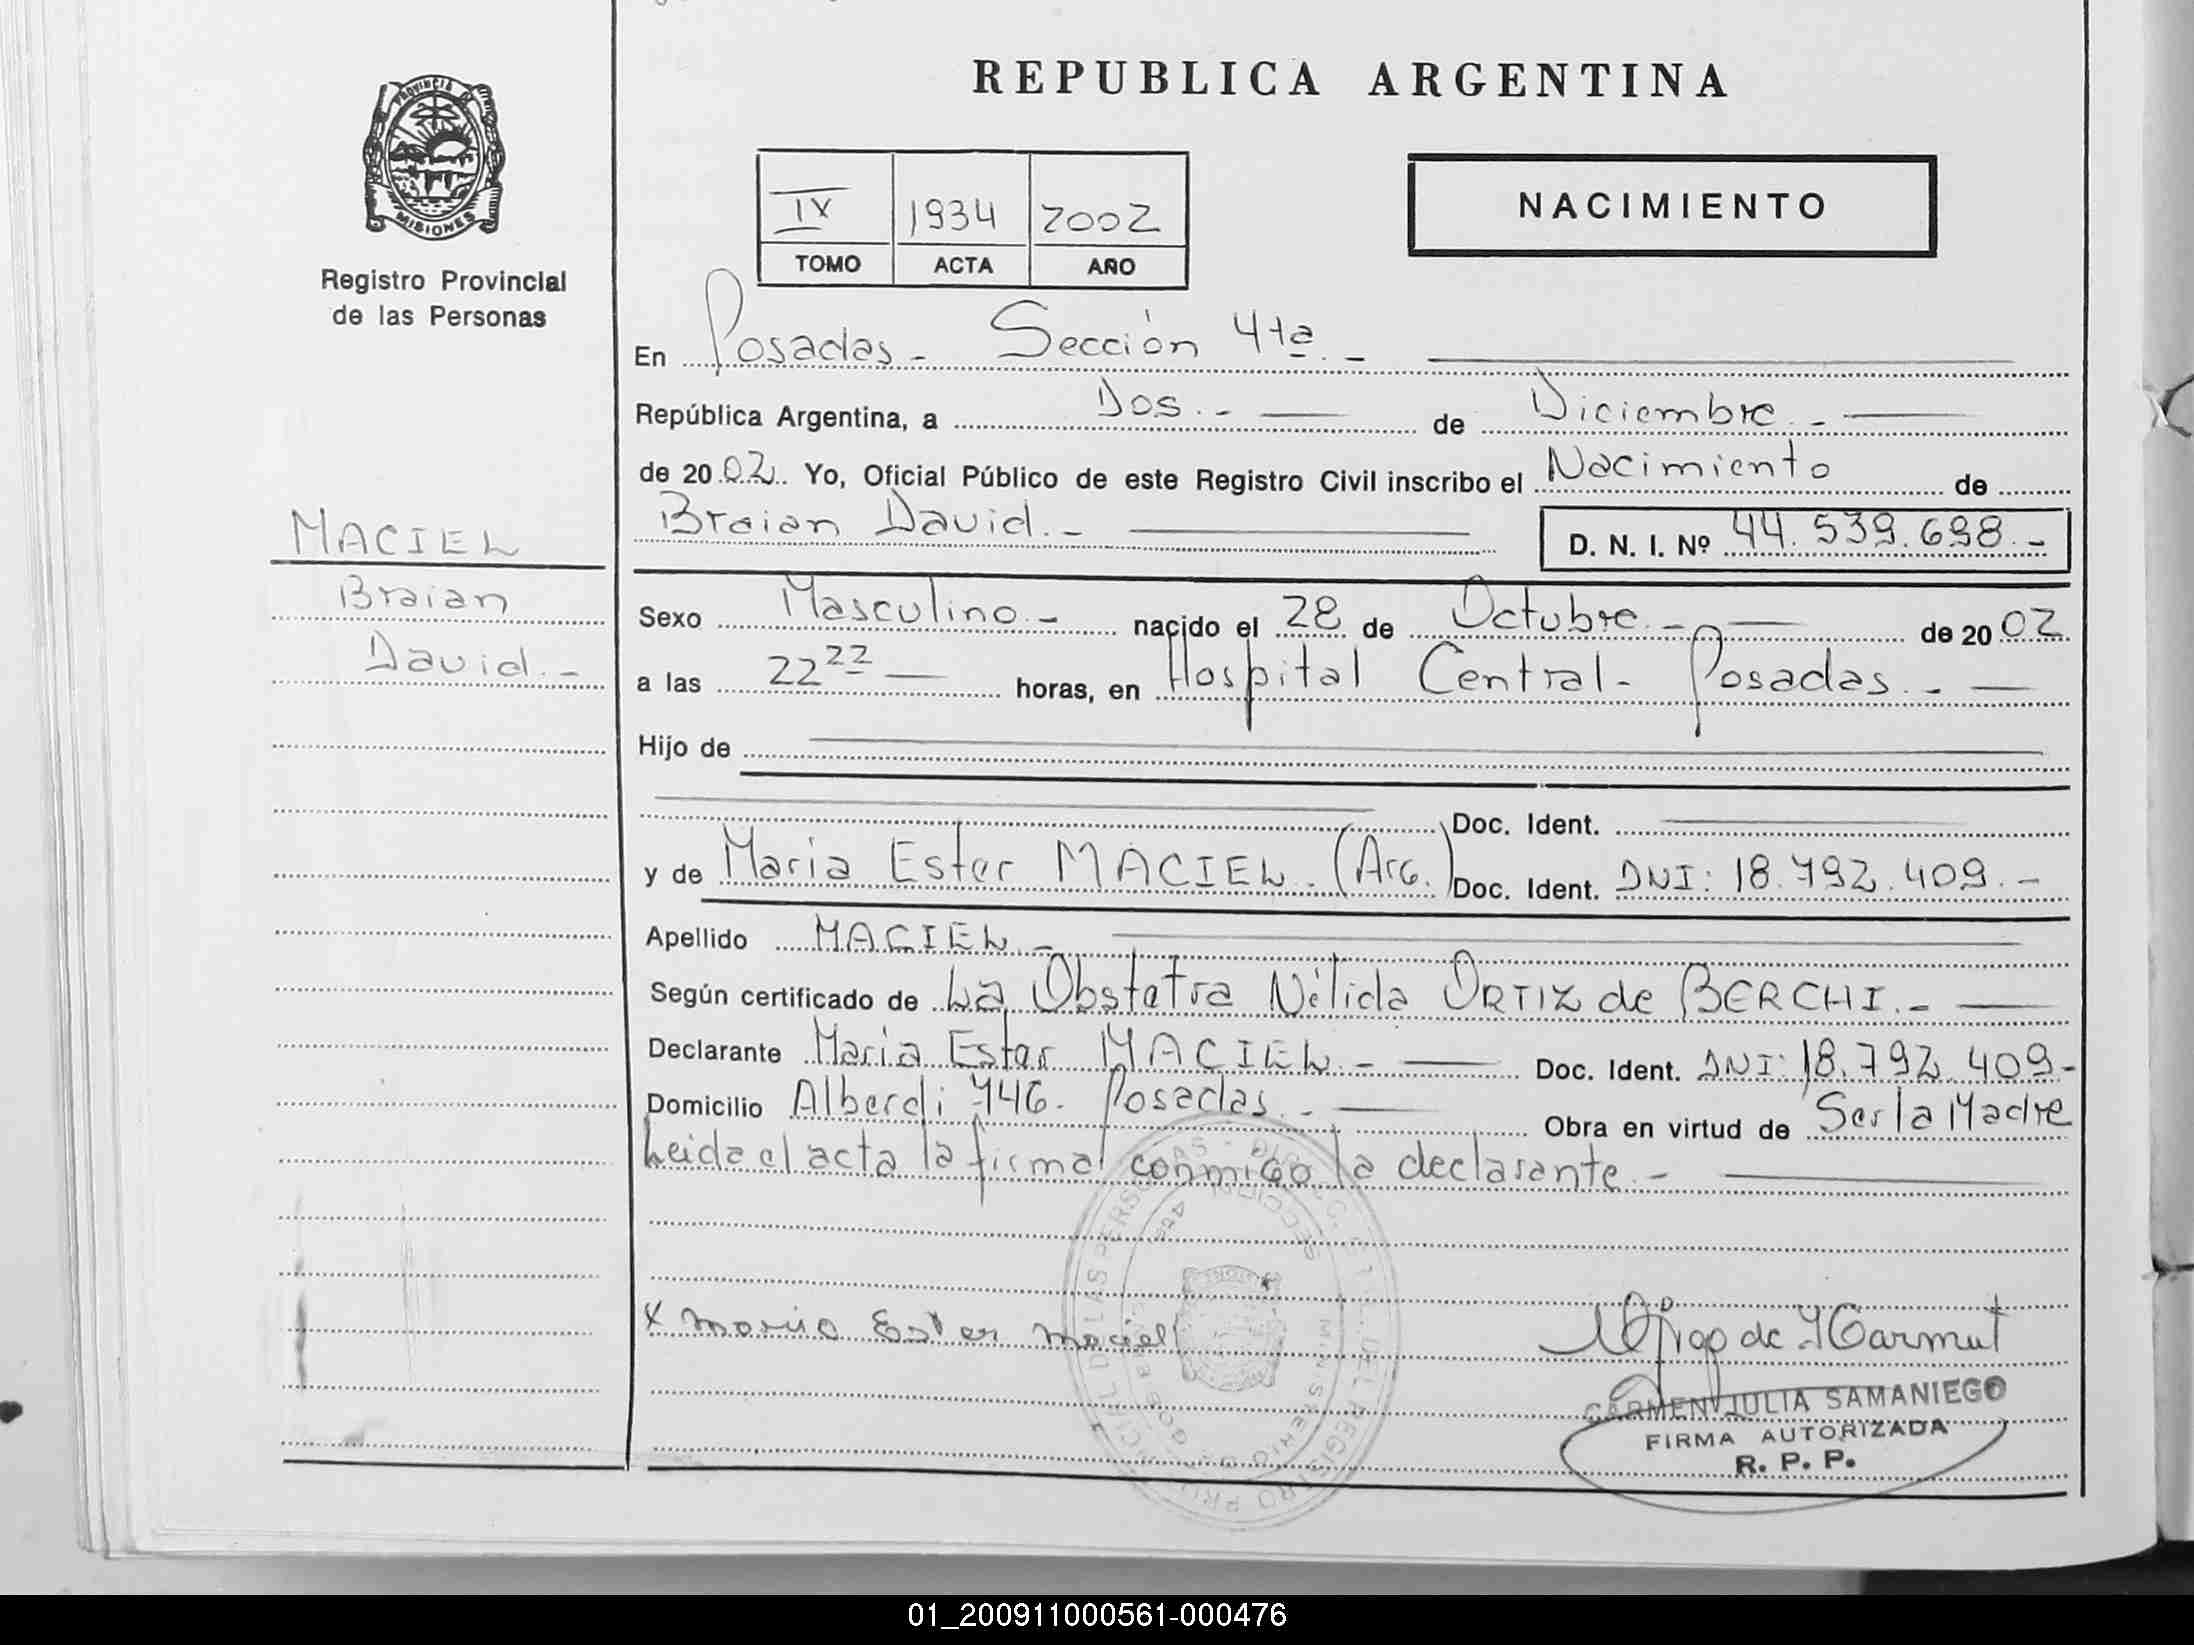 REPUBLICA ARGENTINA
PROVINCIA DE
MISIONES
Registro Provincial
de las Personas
IV 1934 2002
TOMO ACTA AÑO
NACIMIENTO
En Posadas - Sección 4ta. -
República Argentina, a Dos. - de Diciembre. -
de 2002. Yo, Oficial Público de este Registro Civil inscribo el Nacimiento de
Braian David. - D. N. I. Nº 44.539.698. -
MACIEL
Braian
David. -
Sexo Masculino. - nacido el 28 de Octubre. - de 2002
a las 22 22 horas, en Hospital Central - Posadas. -
Hijo de
Doc. Ident.
y de Maria Ester MACIEL. (Arg.) Doc. Ident. DNI: 18.792.409. -
Apellido MACIEL. -
Según certificado de La Obstetra Nélida ORTIZ de BERCHI. -
Declarante Maria Ester MACIEL. - Doc. Ident. DNI: 18.792.409 -
Domicilio Alberdi 746. Posadas. - Obra en virtud de Ser la Madre
Leida el acta la firma conmigo la declarante. -
x Maria Ester Maciel
de
CARMEN JULIA SAMANIEGO
FIRMA AUTORIZADA
R. P. P.
01_200911000561-000476